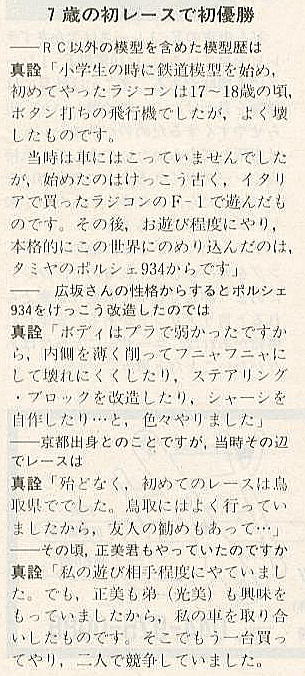 7歳の初レースで初優勝
――ＲＣ以外の模型を含めた模型歴は
真詮「小学生の時に鉄道模型を始め，
初めてやったラジコンは17〜18歳の頃，
ボタン打ちの飛行機でしたが，よく壊
したものです。
　当時は車にはこっていませんでした
が，始めたのはけっこう古く，イタリ
アで買ったラジコンのF-1で遊んだも
のです。その後，お遊び程度にやり，
本格的にこの世界にのめり込んだのは，
タミヤのポルシェ934からです」
――　広坂さんの性格からするとポルシェ
934をけっこう改造したのでは
真詮「ボディはプラで弱かったですか
ら，内側を薄く削ってフニャフニャに
して壊れにくくしたり，ステアリング
・ブロックを改造したり，シャーシを
自作したり…と，色々やりました」
――京都出身とのことですが，当時その辺
でレースは
真詮「殆どなく，初めてのレースは鳥
取県ででした。鳥取にはよく行ってい
ましたから，友人の勧めもあって…」
――その頃，正美君もやっていたのですか
真詮「私の遊び相手程度にやていまし
た。でも，正美も弟（光美）も興味を
もっていましたから，私の車を取り合
いしたものです。そこでもう一台買っ
てやり，二人で競争していました。